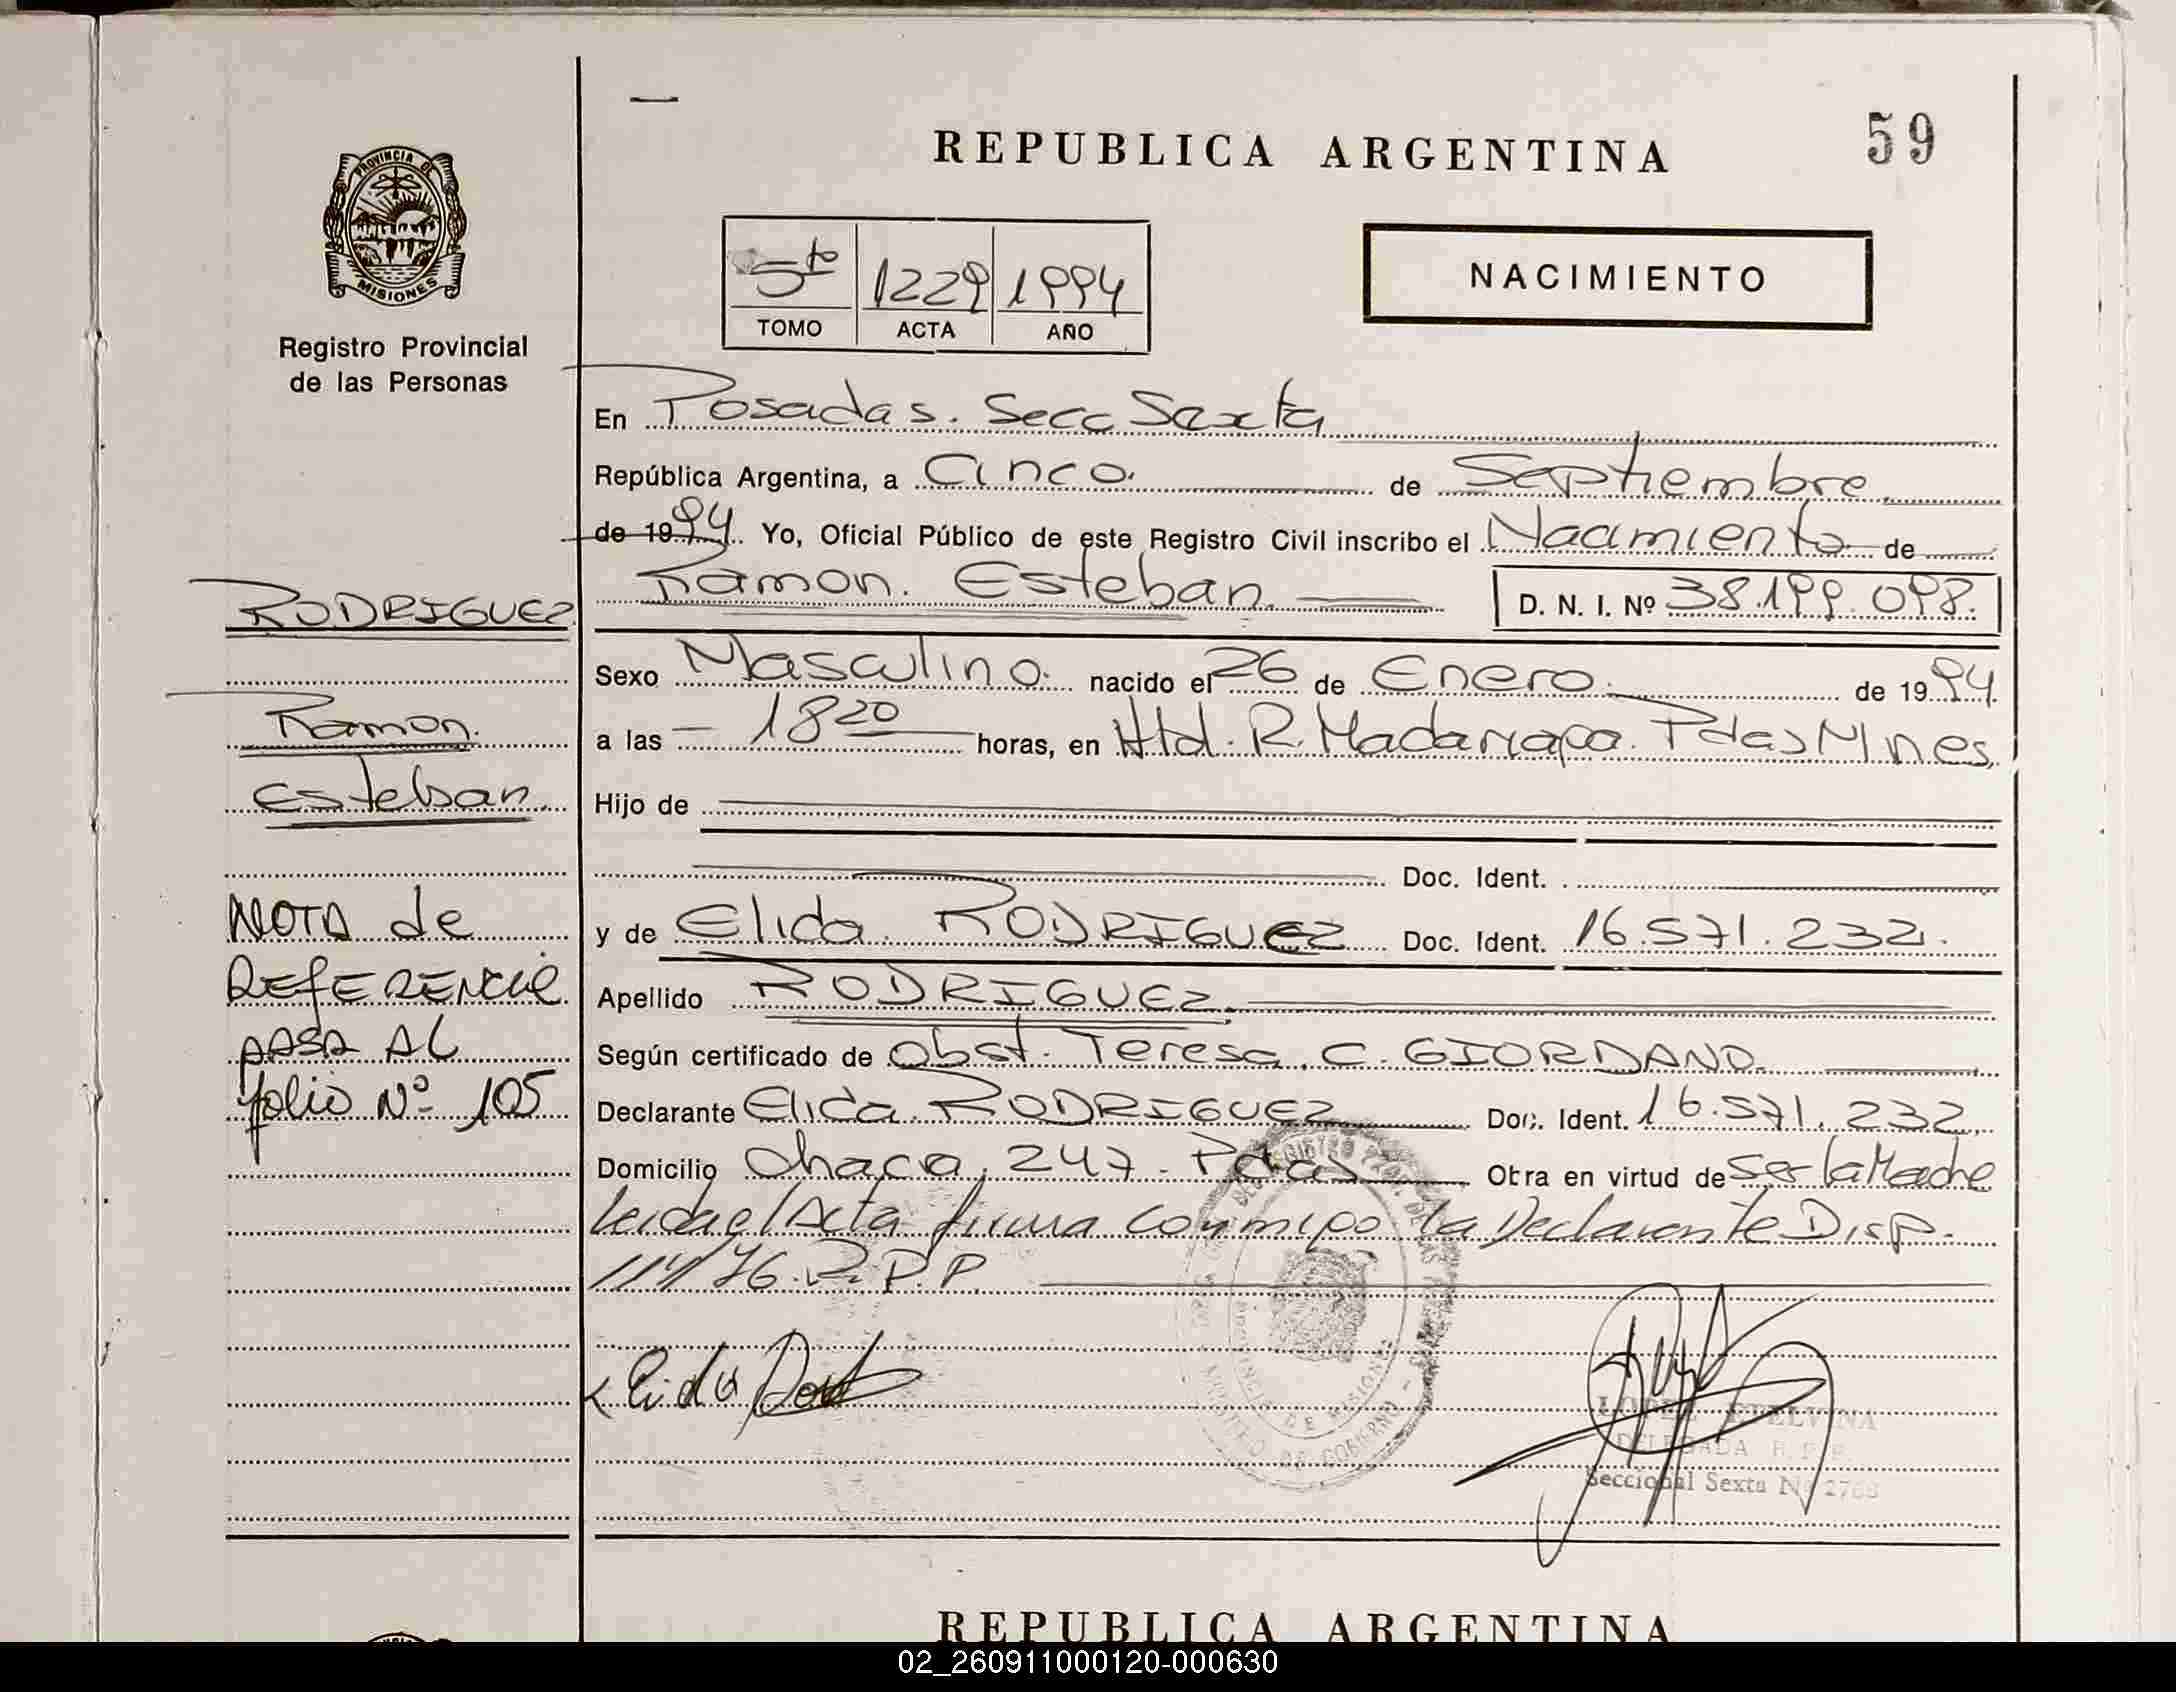 REPUBLICA ARGENTINA
59
PROVINCIA DE
MISIONES
Registro Provincial
de las Personas
5to 1229 1994
TOMO ACTA AÑO
NACIMIENTO
En Posadas. Secc Sexta
República Argentina, a Cinco. de Septiembre.
de 1994. Yo, Oficial Público de este Registro Civil inscribo el Nacimiento de
Ramon. Esteban. D. N. I. Nº 38.199.098.
RODRIGUEZ
Ramon.
Esteban.
Sexo Masculino. nacido el 26 de Enero. de 1994.
a las 18 20 horas, en Htal. R. Madariaga. Pdas Mnes.
Hijo de
Doc. Ident.
y de Elida RODRIGUEZ Doc. Ident. 16.571.232.
Apellido RODRIGUEZ.
Según certificado de Obst. Teresa. C. GIORDANO.
Declarante Elida. RODRIGUEZ Doc. Ident. 16.571.232.
Domicilio Chacra. 247. Pdas Obra en virtud de Ser la Madre
Leida el Acta firma conmigo la Declarante Disp.
114/76. R.P.P.
NOTA de
REFERENCIA
PASA AL
folio Nº 105
Elida
LOPEZ ETELVINA
DELEGADA R.P.P.
Seccional Sexta Nº 2768
PROVINCIA DE MISIONES
REPUBLICA ARGENTINA
02_260911000120-000630